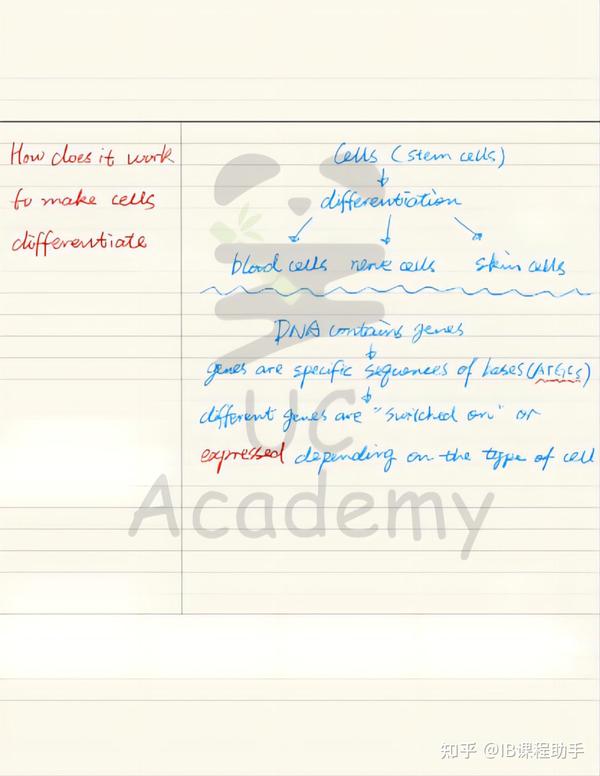 How does it work
to make cells
differentiate
Cells (stem cells)
differentiation
blood cells nerve cells skin cells
DNA contains genes
genes are specific sequences of bases (ATGCs)
different genes are "switched on" or
expressed depending on the type of cell
UC
Academy
知乎 @IB课程助手